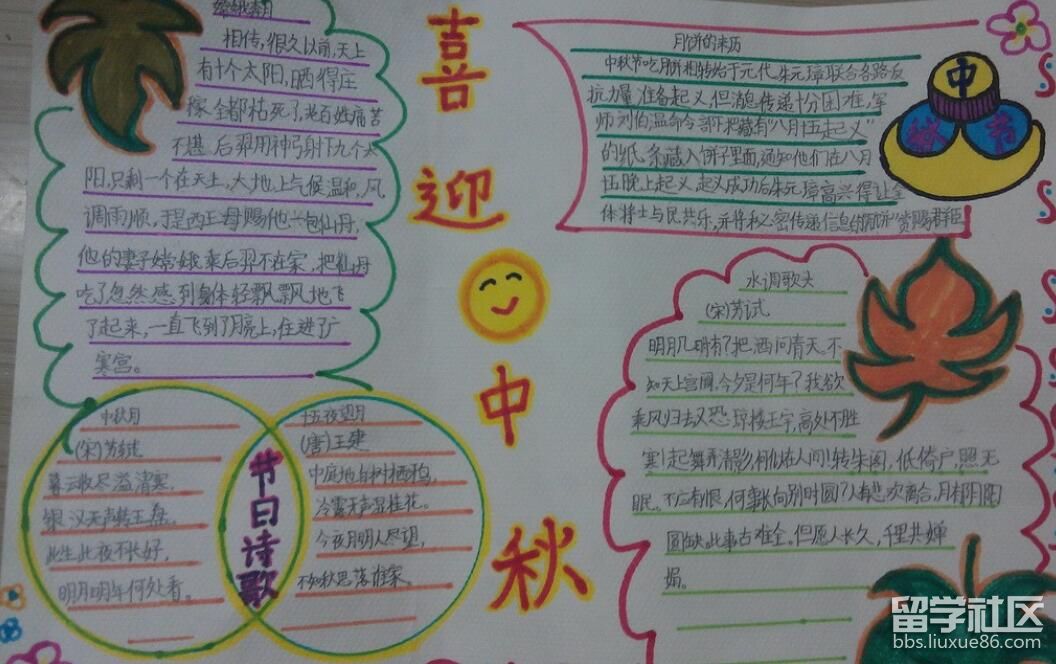 嫦娥奔月
相传,很久以前,天上
有十个太阳,晒得庄
稼全都枯死了,老百姓痛苦
不堪,后羿用神弓射下九个太
阳,只剩一个在天上,大地上气候温和,风
调雨顺,于是西王母赐他一包仙丹,
他的妻子嫦娥乘后羿不在家,把仙丹
吃了忽然感到身体轻飘飘地飞
了起来,一直飞到了月亮上,住进了广
寒宫。
喜
迎
中
秋
月饼的来历
中秋节吃月饼相转始于元代,朱元璋联合各路反
抗力量准备起义,但消息传递十分困难,军
师刘伯温命令部下把藏有“八月十五起义”
的纸条藏入饼子里面,通知他们在八月
十五晚上起义,起义成功后朱元璋高兴得让全
体将士与民共乐,并将秘密传递信息的月饼赏赐群臣
中
秋 节
中秋月
(宋)苏轼
暮云收尽溢清寒,
银汉无声转玉盘。
此生此夜不长好,
明月明年何处看。
节日诗歌
十五夜望月
(唐)王建
中庭地白树栖鸦,
冷露无声湿桂花。
今夜月明人尽望,
不知秋思落谁家。
水调歌头
(宋)苏试
明月几时有?把酒问青天。不
知天上宫阙,今夕是何年?我欲
乘风归去又恐琼楼玉宇,高处不胜
寒!起舞弄清影,何似在人间!转朱阁,低倚户,照无
眠。不应有恨,何事长向别时圆?人有悲欢离合,月有阴阳
圆缺此事古难全。但愿人长久,千里共婵
娟。
留学社区
bbs.liuxue86.com